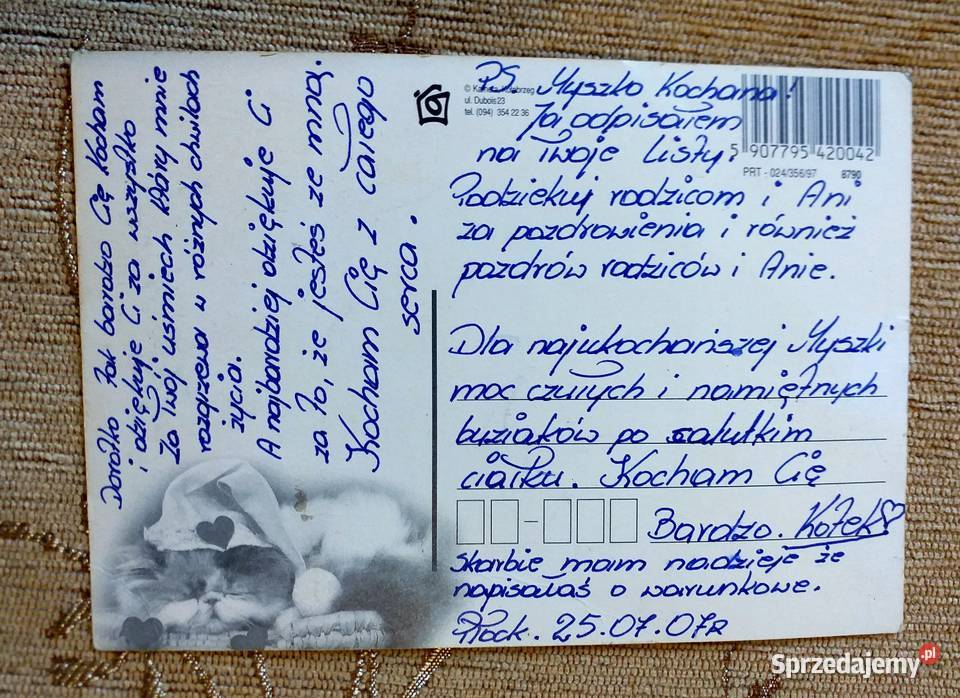 Dorotko Tak bardzo Cię Kocham
i dziękuję Ci za wszystko
Za Twój uśmiech który mnie
rozgrzewa w różnych chwilach
życia.
A najbardziej dziękuję Ci
za to, że jesteś ze mną.
Kocham Cię z całego
serca.
© Kartella, Kołobrzeg
ul. Dubois 23
tel. (094) 354 22 36
5 907795 420042
PRT - 024/356/97 8790
PS Myszko Kochana!
Ja odpisałem
na Twoje Listy.
Podziękuj rodzicom i Ani
za pozdrowienia i również
pozdrów rodziców i Anie.
Dla najukochańszej Myszki
moc czułych i namiętnych
buziaków po calutkim
ciałku. Kocham Cię
Bardzo. Kotek
Skarbie mam nadzieję że
napisałaś o warunkowe.
Płock. 25.07.07r
Sprzedajemy.pl